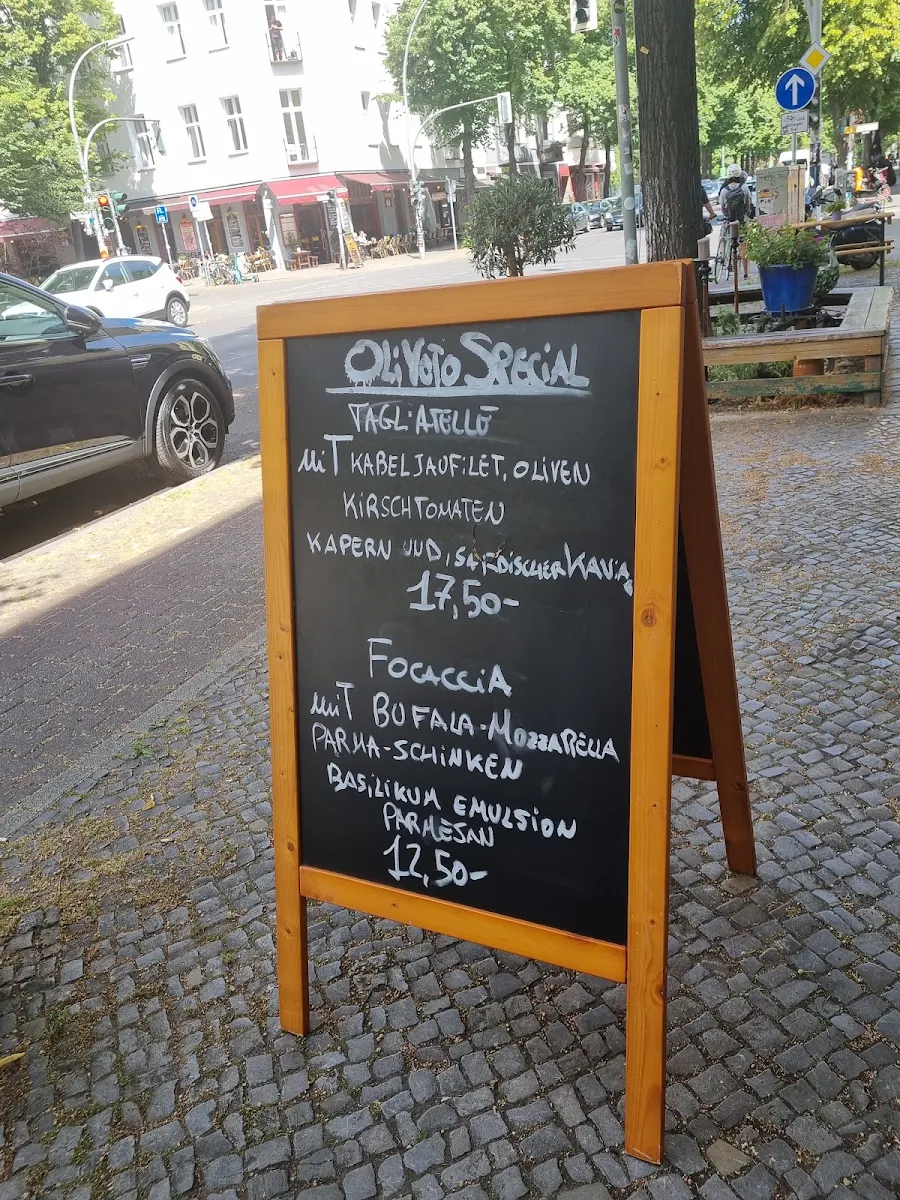 OLiVOTO SPECiAL
TAGLiATELLE
MiT KABELJAUFiLET, OLIVEN
KiRSCHTOMATEN
KAPERN UND, SARDISCHER KAVIA
17,50-
FOCACCiA
MiT BUFALA-MOZZARELLA
PARMA-SCHiNKEN
BASiLiKUM EMULSION
PARMESAN
12,50-